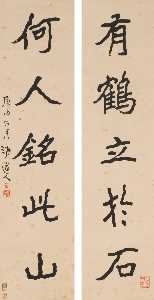 有鶴立於石
何人銘此山